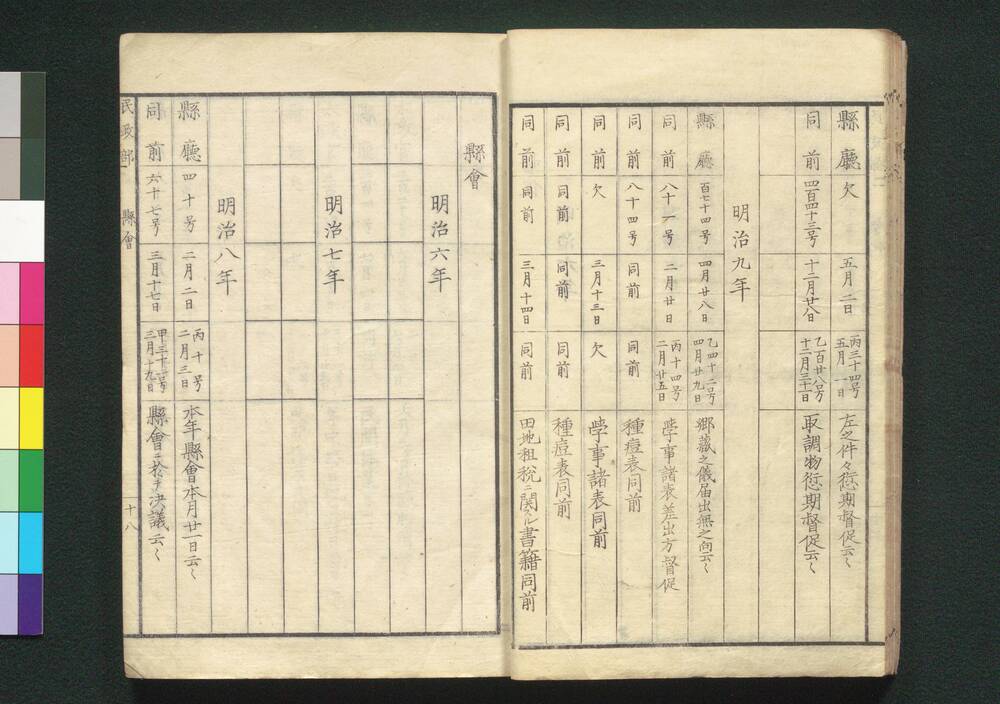 縣廳 欠 五月二日 丙三十四号 五月一日 左之件々愆期督促云〱
同前 四百四十三号 十二月廿八日 乙百廿八号 十二月三十一日 取調物愆期督促云〱
明治九年
縣廳 百七十四号 四月廿八日 乙四十二号 四月廿九日 郷藏之儀届出無之向云〱
同前 八十一号 二月廿日 丙十四号 二月廿五日 學事諸表差出方督促
同前 八十四号 同前 同前 種痘表同前
同前 欠 三月十三日 欠 學事諸表同前
同前 同前 同前 同前 種痘表同前
同前 同前 三月十四日 同前 田地租税ニ関スル書籍同前
縣會
明治六年
明治七年
明治八年
縣廳 四十号 二月二日 丙十号 二月三日 本年縣會本月廿一日云〱
同前 六十七号 三月十七日 甲三十二号 三月十九日 縣會ニ於テ決議云〱
民政部 縣會 十八